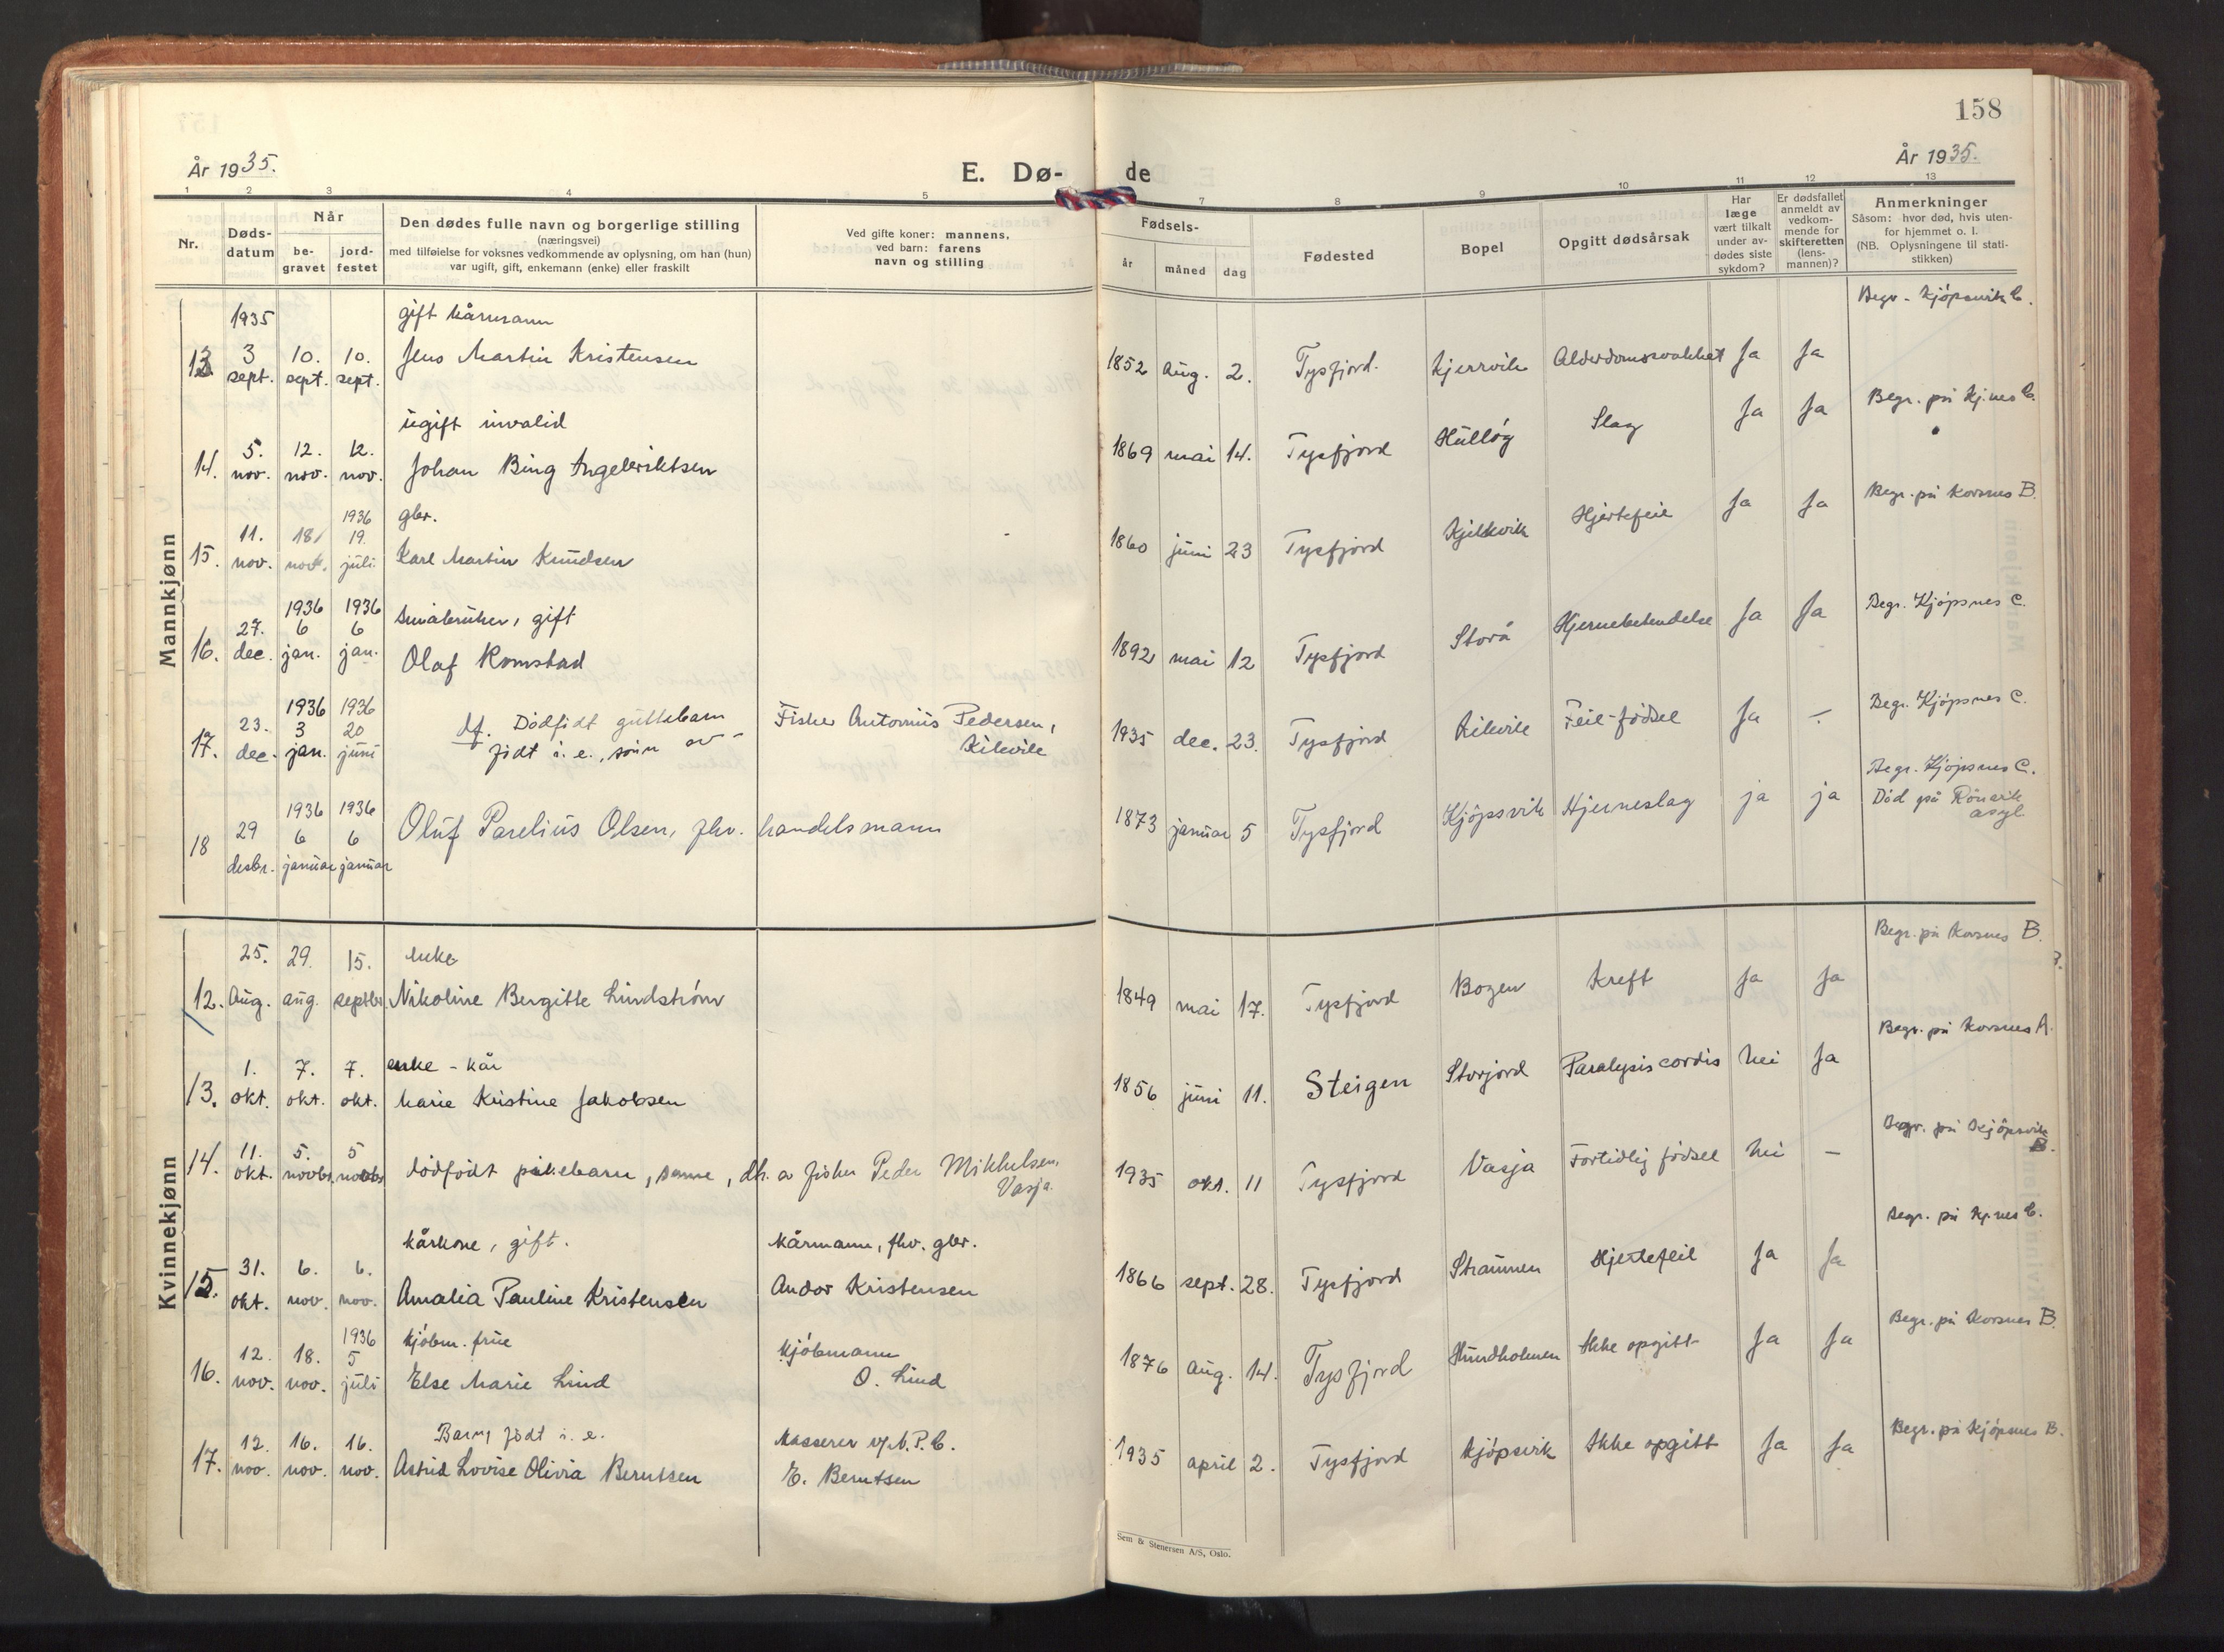 158
År 1935.
E. Dø-
de
År 1935.
1 2 3 4 5 7 8 9 10 11 12 13
Nr.
Døds-
datum
Når
be-
gravet
jord-
festet
Den dødes fulle navn og borgerlige stilling
(næringsvei)
med tilføielse for voksnes vedkommende av oplysning, om han (hun)
var ugift, gift, enkemann (enke) eller fraskilt
Ved gifte koner: mannens,
ved barn: farens
navn og stilling
Fødsels-
år
måned
dag
Fødested
Bopel
Opgitt dødsårsak
Har
læge
vært tilkalt
under av-
dødes siste
sykdom?
Er dødsfallet
anmeldt av
vedkom-
mende for
skifteretten
(lens-
mannen)?
Anmerkninger
Såsom: hvor død, hvis uten-
for hjemmet o. l.
(NB. Oplysningene til stati-
stikken)
Mannkjønn
1935 gift kårmann Begr - Kjøpsvik C.
13 3 10. 10. Jens Martin Kristensen 1852 Aug. 2. Tysfjord. Kjerrvik Alderdomssvakhet Ja Ja
sept. sept. sept.
ugift invalid Begr. på Kj.nes C.
14. 5. 12. 12. Johan Bing Ingebriktsen 1869 mai 14. Tysfjord Hulløy Slag Ja Ja
nov. nov. nov.
1936 gbr. Begr. på Korsnes B.
15. 11. 18 19. Karl Martin Knudsen 1860 juni 23 Tysfjord Hjertefeil Ja Ja
nov. nov. juli
1936 1936 småbruker, gift Begr. Kjøpsnes C.
16. 27. 6 6 Olaf Romstad 1892 mai 12 Tysfjord Storå Hjernebetendelse Ja Ja
dec. jan. jan.
1936 1936 df. Dødfødt guttebarn Fisker Antonius Pedersen, Begr. Kjøpsnes C.
17. 23. 3 20 født i. e., sønn av - Kilvik 1935 dec. 23. Tysfjord Kilvik Feil-fødsel Ja -
dec. jan. juni
1936 1936 Begr. Kjøpsnes C.
18 29 6 6 Oluf Parelius Olsen, fhv. handelsmann 1873 januar 5 Tysfjord Kjøpsvik Hjerneslag ja ja Død på Rønvik
desbr. januar januar asyl.
Kvinnekjønn
25. 29. 15. enke Begr. på Korsnes B.
12. Aug. aug. septbr Nikoline Bergitte Lindstrøm 1849 mai 17. Tysfjord Bogen Kreft Ja Ja
1. 7. 7. enke - kår Begr. på Korsnes A.
13. okt. okt. okt. Marie Kristine Jakobsen 1856 juni 11. Steigen Storjord Paralysis cordis Nei Ja
11. 5. 5 Begr. på Kjøpsvik
14. okt. novbr. novbr. dødfødt pikebarn, samme, dtr. a fisker Peder Mikkelsen, 1935 okt. 11 Tysfjord Vasja Fortidlig fødsel Nei - B.
Vasja.
kårkone, gift. Kårmann, fhv. gbr. Begr. på Kj.nes C.
15. 31. 6. 6. Amalia Pauline Kristensen Andor Kristensen 1866 sept. 28. Tysfjord Straumen Hjertefeil Ja Ja
okt. nov. nov.
1936 kjøbm. frue kjøbmann Begr. på Korsnes B.
16. 12. 18. 5 Else Marie Lind O. Lind 1876 Aug. 14. Tysfjord Hundholmen Ikke opgitt Ja Ja
nov. nov. juli
Barn, født i. e. Kasserer v/N.P.C. Begr. på Kjøpsnes B.
17. 12. 16. 16. Astrid Lovise Olivia Berntsen E. Berntsen 1935 april 2. Tysfjord Kjøpsvik Ikke opgitt Ja Ja
nov. nov. nov.
Sem & Stenersen A/S, Oslo.